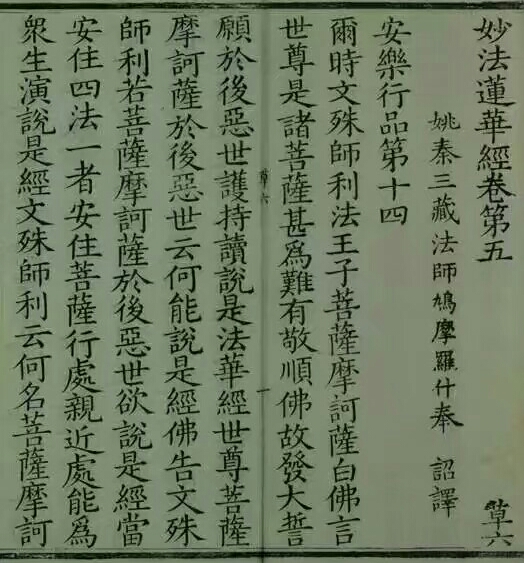 妙法蓮華經卷第五
草六
姚秦三藏法師鳩摩羅什奉 詔譯
安樂行品第十四
爾時文殊師利法王子菩薩摩訶薩白佛言
世尊是諸菩薩甚爲難有敬順佛故發大誓
草六
一
願於後惡世護持讀說是法華經世尊菩薩
摩訶薩於後惡世云何能說是經佛告文殊
師利若菩薩摩訶薩於後惡世欲說是經當
安住四法一者安住菩薩行處親近處能爲
衆生演說是經文殊師利云何名菩薩摩訶